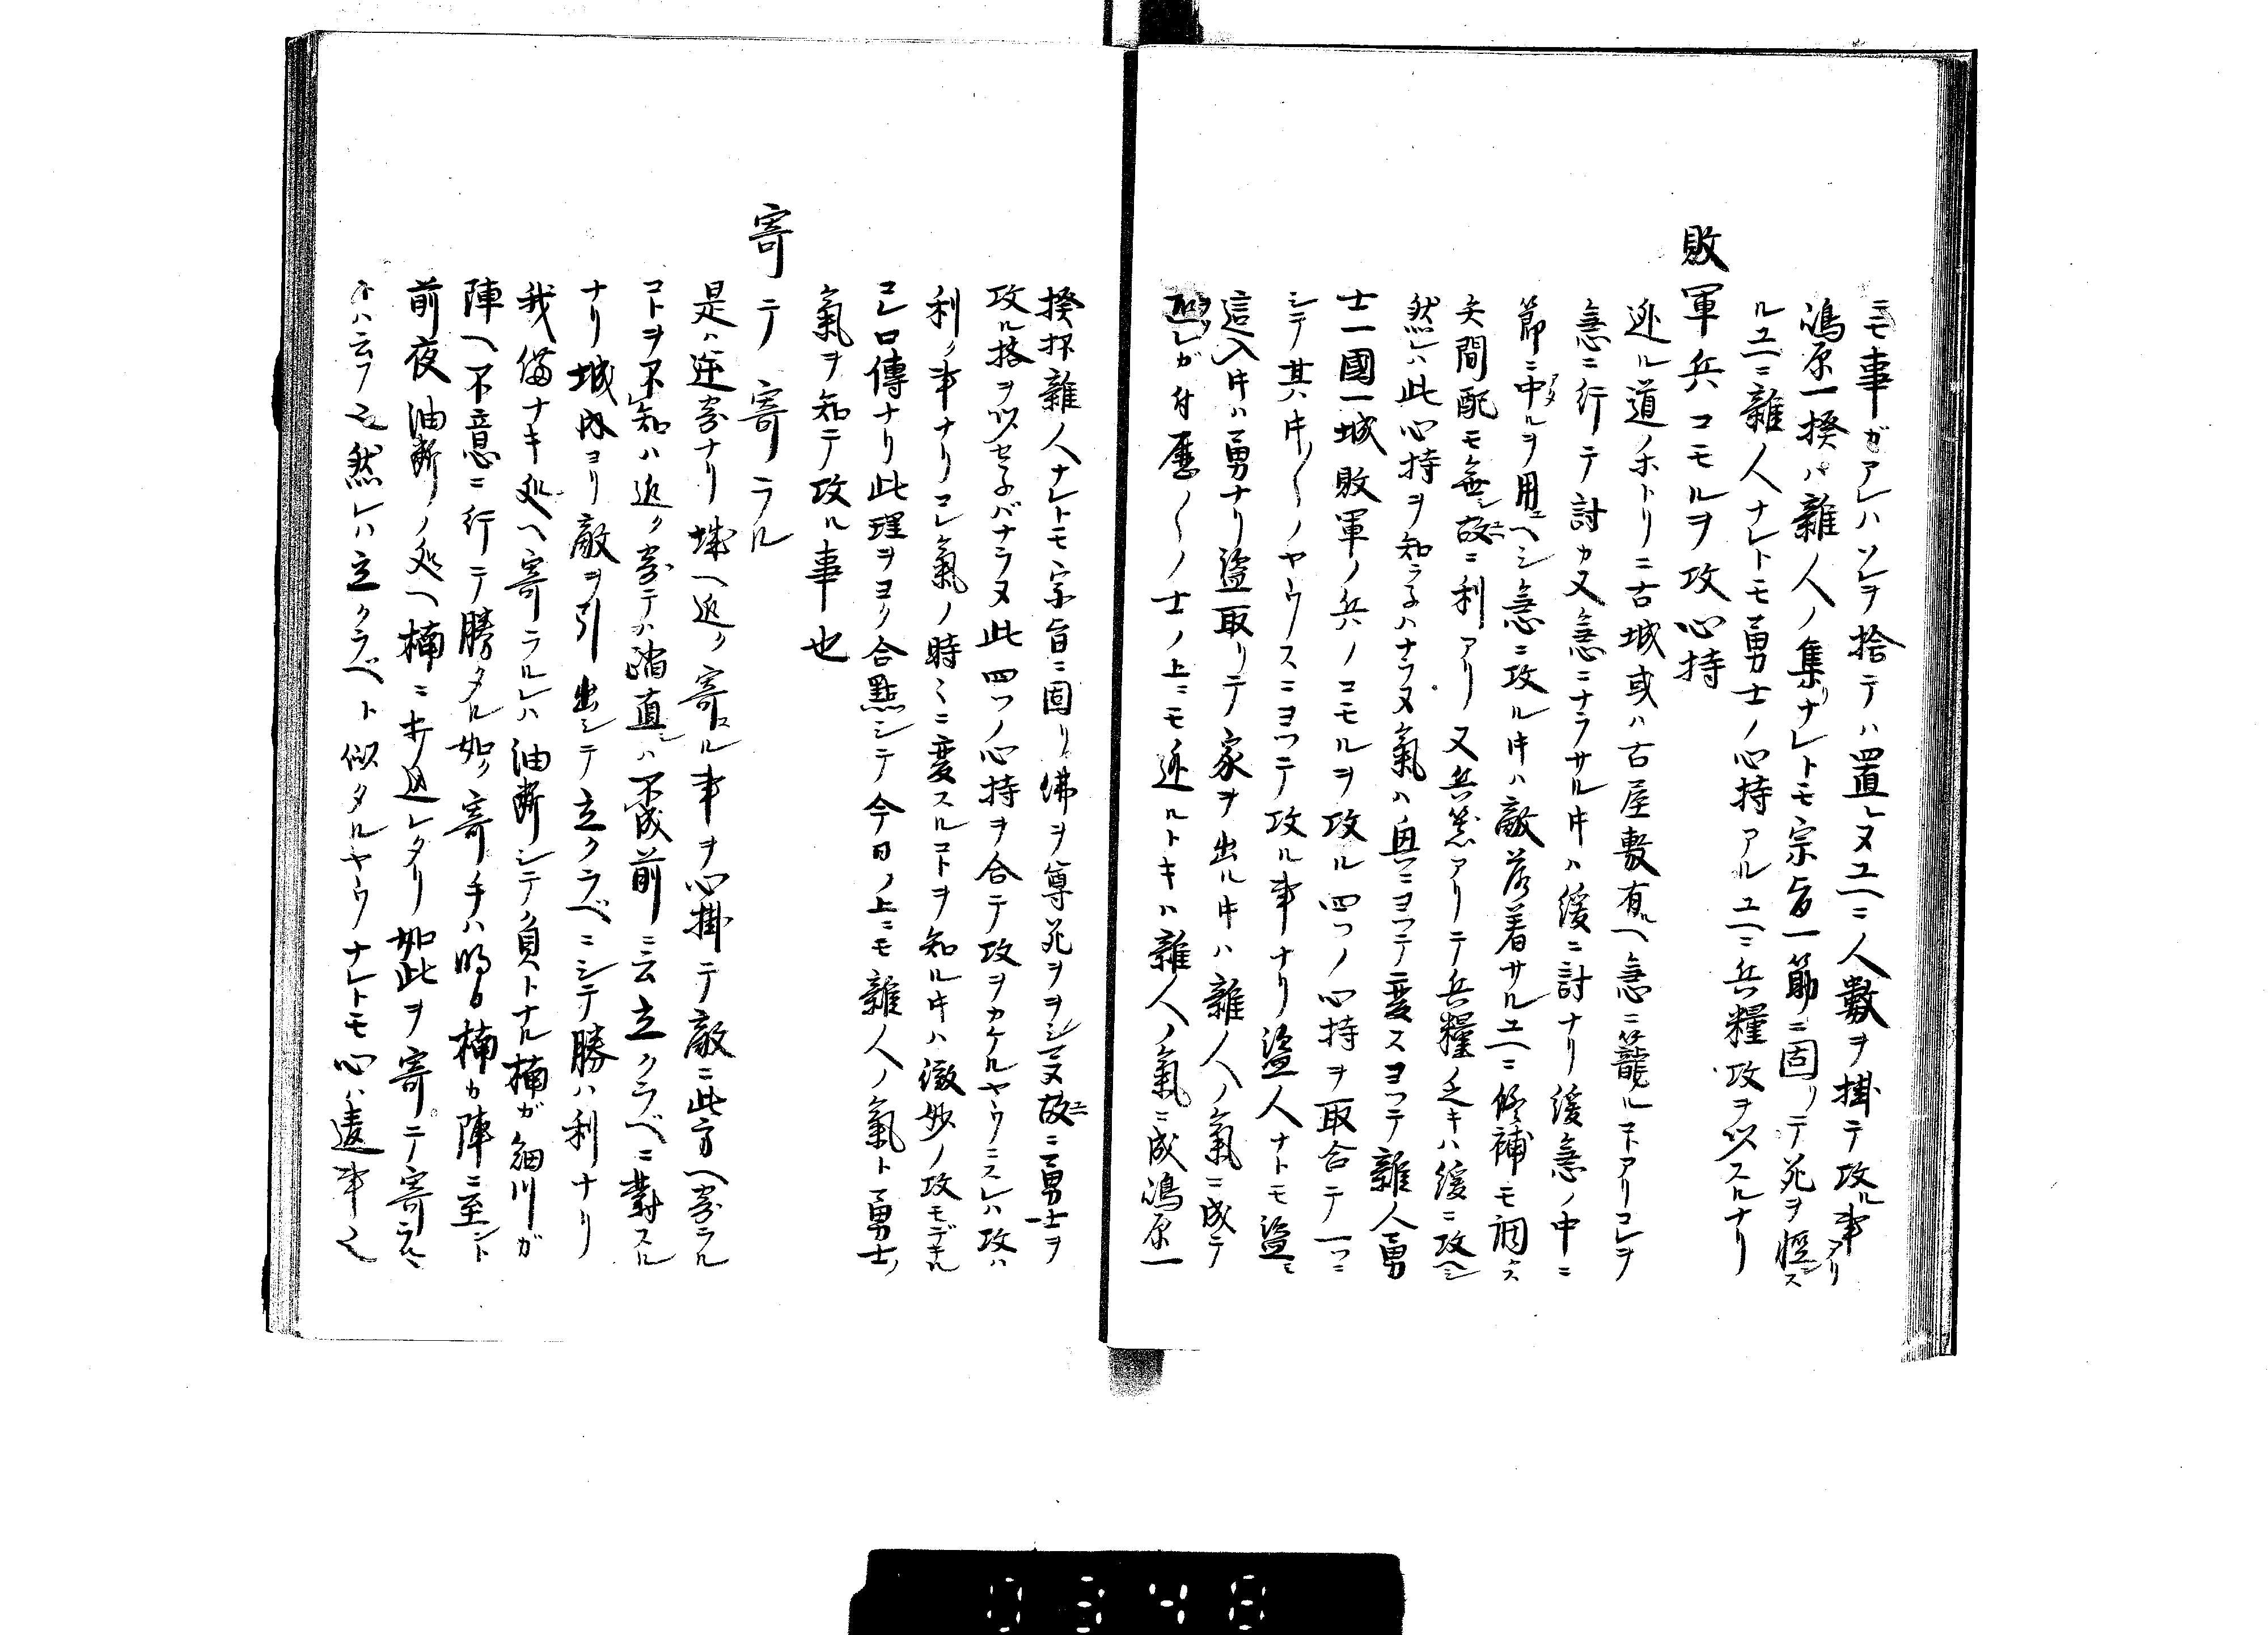 ニモ事ガアレハソレヲ捨テハ置レヌユヘニ人數ヲ掛テ攻ル事アリ
嶋原一揆ハ雜人ノ集リナレトモ宗旨一筋ニ固リテ死ヲ軽ンス
ルユヘニ雜人ナレトモ勇士ノ心持アルユヘニ兵糧攻ヲ以スルナリ
敗軍兵コモルヲ攻心持
逃ル道ノホトリニ古城或ハ古屋敷有ヘ急ニ籠ルコトアリコレヲ
急ニ行テ討カ又急ニナラサル寸ハ緩ニ討ナリ緩急ノ中ニ
節ニ中ルヲ用ヘシ急ニ攻ル寸ハ敵落着サルユヘニ修補モ調ハス
矢間配モ無シ故ニ利アリ又兵義アリテ兵糧乏キハ緩ニ攻ヘシ
然レハ此心持ヲ知ラ子ハナラヌ氣ハ奥ニヨツテ変スヨツテ雜人勇
士一國一城敗軍ノ兵ノコモルヲ攻ル四ツノ心持ヲ取合テ一ツニ
シテ其寸〱ノヤウスニヨツテ攻ル事ナリ盗人ナトモ盗ミニ
這入寸ハ勇ナリ盗取リテ家ヲ出ル寸ハ雜人ノ氣ニ成テ
ガ付歴〱ノ士ノ上ニモ逃ルトキハ雜人ノ氣ニ成嶋原一
揆抔雜人ナレトモ宗旨ニ固リ佛ヲ尊死ヲヲシマヌ故ニ勇士ヲ
攻ル格ヲ以セ子バナラヌ此四ツノ心持ヲ合テ攻ヲカケルヤウニスレハ攻ハ
利ノ事ナリコレ氣ノ時〻ニ変スルコトヲ知ル寸ハ微妙ノ攻モデキル
コレ口傳ナリ此理ヲヨク合點シテ今日ノ上ニモ雜人ノ氣ト勇士ノ
氣ヲ知テ攻ル事也
寄テ寄ラル
是ハ逆寄ナリ城ヘ近ク寄ル事ヲ心掛テ敵ニ此方ヘ寄ラル
コトヲ不知ハ近ク寄テハ備直シハ不成前ニ云立クラベニ對スル
ナリ城内ヨリ敵ヲ引出シテ立クラベニシテ勝ハ利ナリ
我備ナキ処ヘ寄ラルレハ油断シテ負トナル楠ガ細川ガ
陣ヘ不意ニ行テ勝タル如ク寄手ハ明日楠カ陣ニ至ント
前夜油断ノ処ヘ楠ニ寄レタリ如此ヲ寄テ寄ラルヽ
トハ云フ也然レハ立クラベト似タルヤウナレトモ心ハ違事也